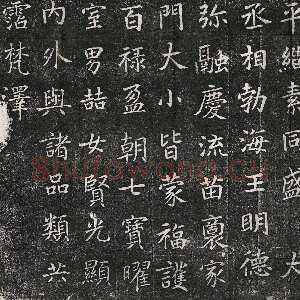 平緇素同盛大
丞相勃海王明德
弥融慶流苗裔家
門大小皆蒙福護
百祿盈朝七寶曜
室男喆女賢光顯
內外與諸品類共
霑梵澤